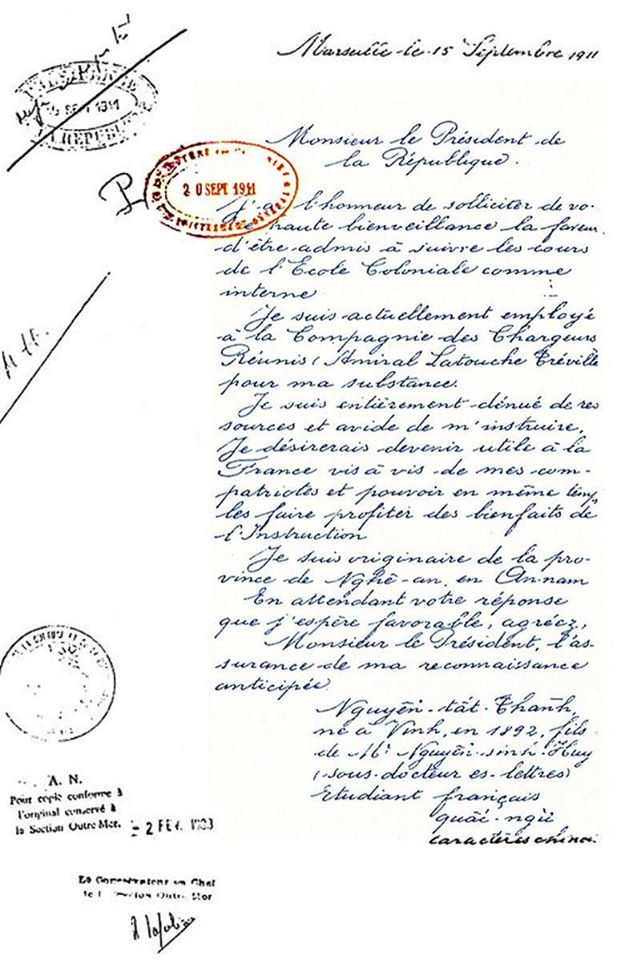 Marseille le 15 Septembre 1911
Monsieur le Président de
la République.
20 SEPT 1911
l'honneur de solliciter de vo-
haute bienveillance la faveu
d'être admis à suivre les cours
de l'Ecole Coloniale comme
interne
Je suis actuellement employé
à la Compagnie des Chargeurs
Réunis (Amiral Latouche Tréville
pour ma substance.
Je suis entièrement dénué de res
sources et avide de m'instruire.
Je désirerais devenir utile à la
France vis à vis de mes com-
patriotes et pouvoir en même temp
les faire profiter des bienfaits de
l'Instruction
Je suis originaire de la pro-
vince de Nghê-an, en An-nam
En attendant votre réponse
que j'espère favorable, agréez,
Monsieur le Président, l'as-
surance de ma reconnaissance
anticipée
Nguyên-tất-Thanh,
né à Vinh, en 1892, fils
de Mr Nguyên-sinh-Huy
(sous-docteur es-lettres)
Etudiant français
quâi-ngü
caractères chinoi
A. N.
Pour copie conforme à
l'original conservé à
la Section Outre Mer.
- 2 FEV.
Le Conservateur en Chef
de la Section Outre Mer